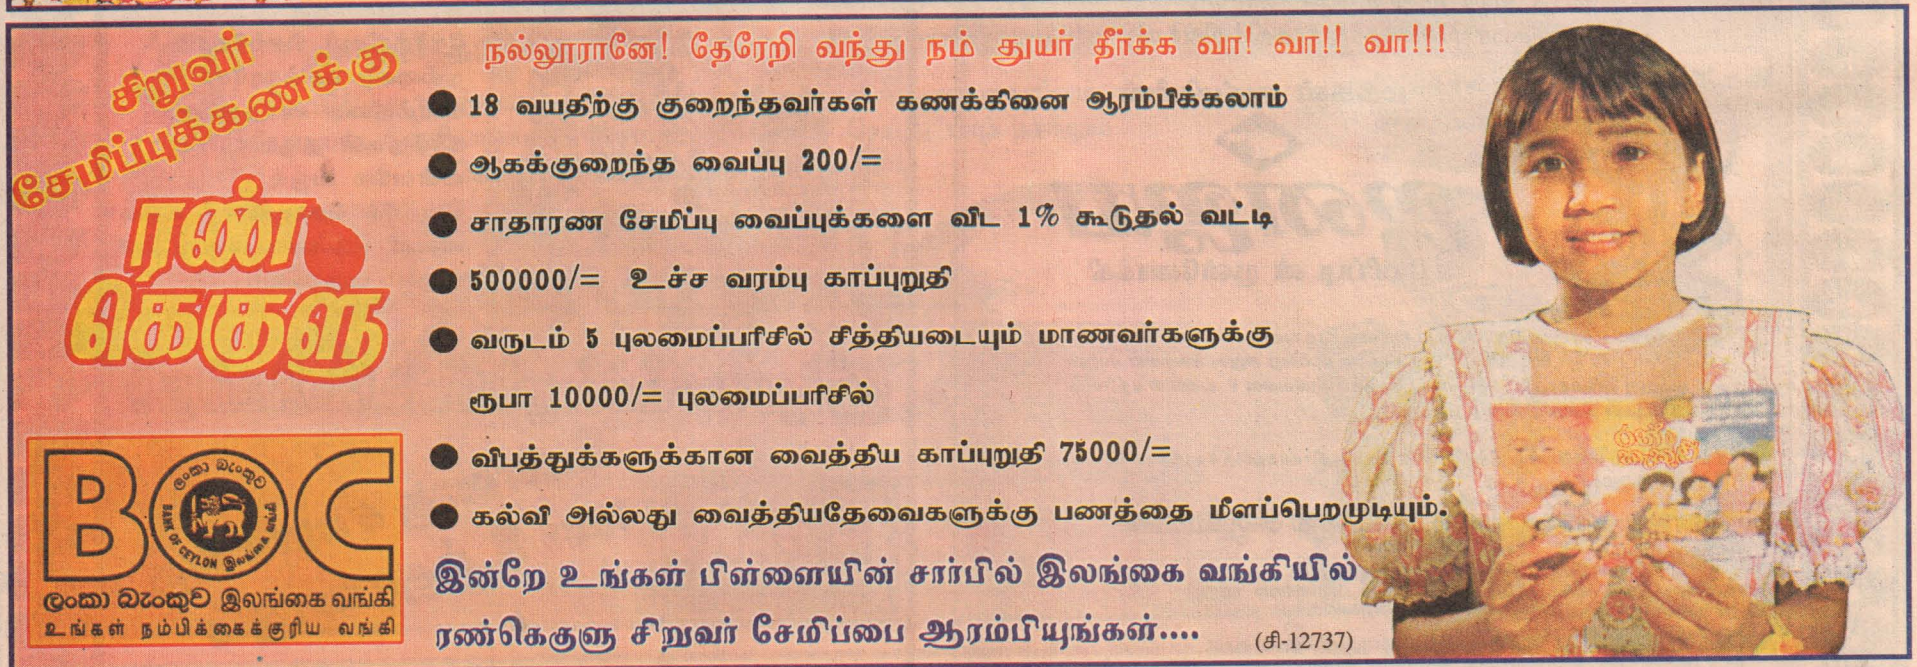 சிறுவர்
சேமிப்புக்கணக்கு
ரண்
கெகுளு
BOC
ලංකා බැංකුව
BANK OF CEYLON
இலங்கை வங்கி
ලංකා බැංකුව இலங்கை வங்கி
உங்கள் நம்பிக்கைக்குரிய வங்கி
நல்லூரானே! தேரேறி வந்து நம் துயர் தீர்க்க வா! வா!! வா!!!
● 18 வயதிற்கு குறைந்தவர்கள் கணக்கினை ஆரம்பிக்கலாம்
● ஆகக்குறைந்த வைப்பு 200/=
● சாதாரண சேமிப்பு வைப்புக்களை விட 1% கூடுதல் வட்டி
● 500000/= உச்ச வரம்பு காப்புறுதி
● வருடம் 5 புலமைப்பரிசில் சித்தியடையும் மாணவர்களுக்கு
ரூபா 10000/= புலமைப்பரிசில்
● விபத்துக்களுக்கான வைத்திய காப்புறுதி 75000/=
● கல்வி அல்லது வைத்தியதேவைகளுக்கு பணத்தை மீளப்பெறமுடியும்.
இன்றே உங்கள் பிள்ளையின் சார்பில் இலங்கை வங்கியில்
ரண்கெகுளு சிறுவர் சேமிப்பை ஆரம்பியுங்கள்....
(சி-12737)